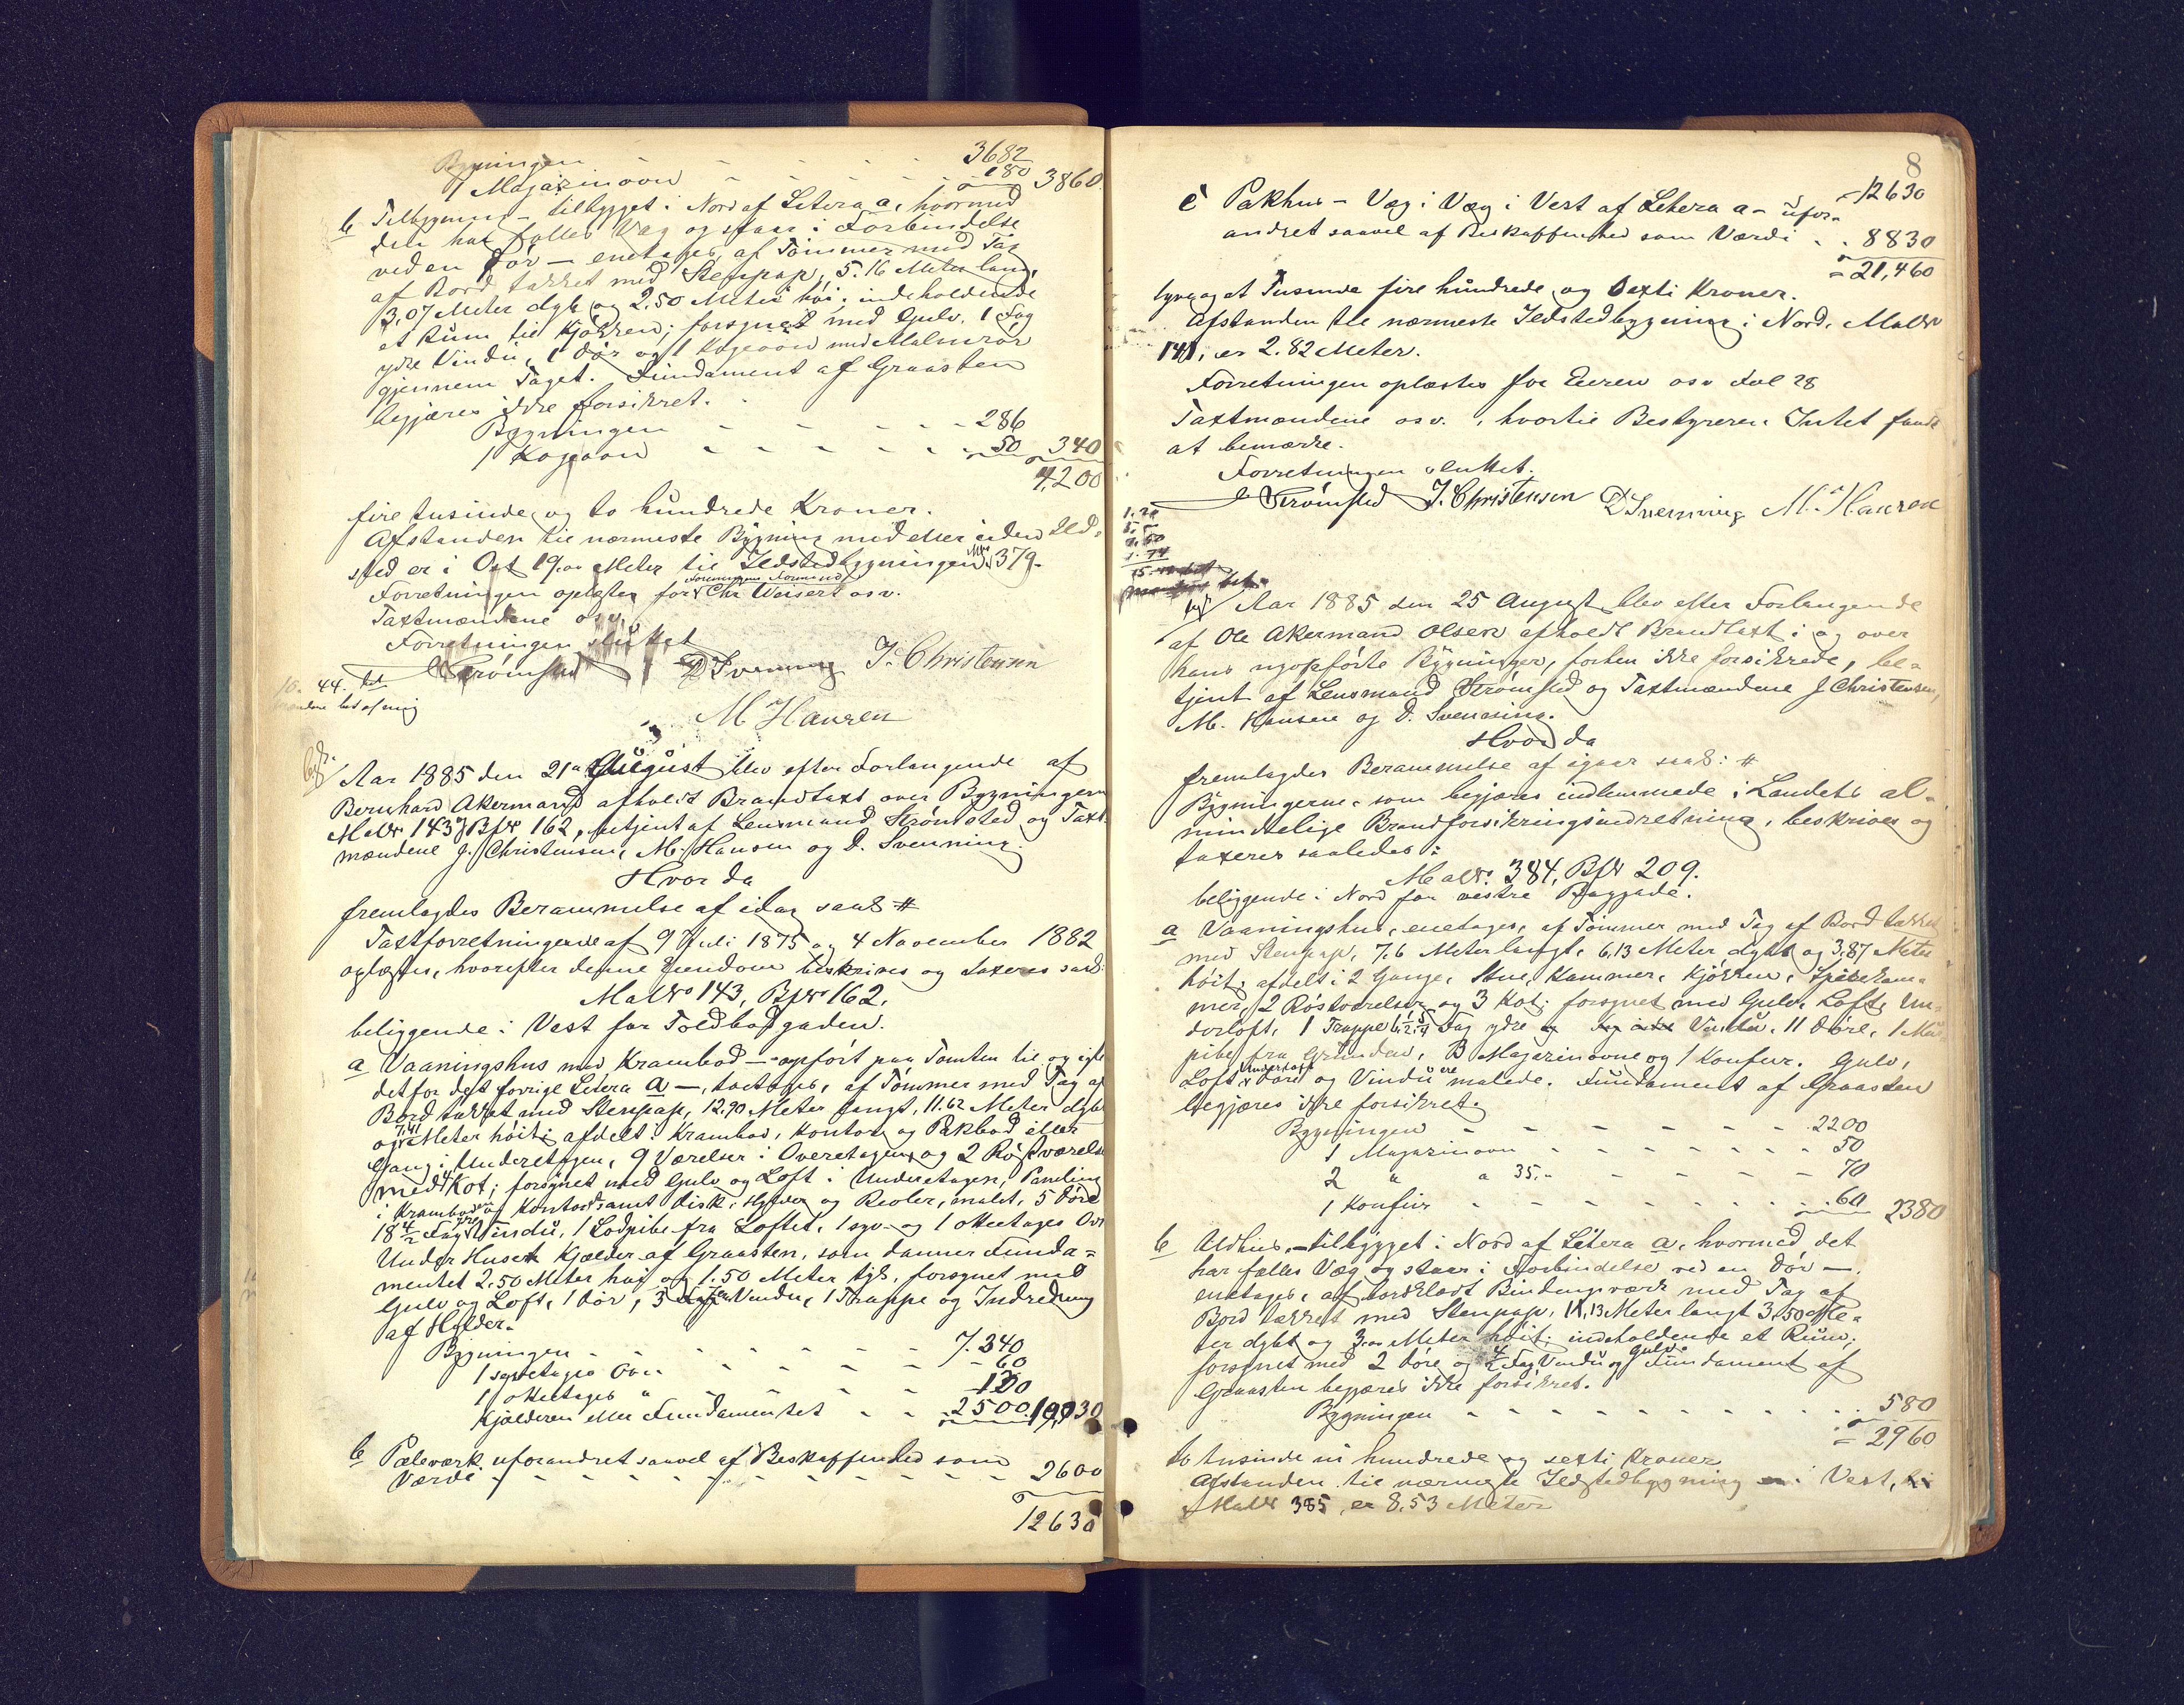 Bygningen - - - - - 3682
1 Magazinovn - - - - - 180 3860
b Tilbygning - tilbygget i Nord af Litera a, hvormed
den har fælles Væg og staar i Forbindelse
ved en Dør — enetages, af Tømmer med Tag
af Bord tækket med Stenpap, 5.16 Meter lang,
3,07 Meter dyb og 2,50 Meter høi; indeholdende
et Rum til Kjøkken; forsynet med Gulv, 1 Fag
ydre Vindu, 1 Dør og 1 Kogeovn med Malmrør
gjennem Taget. Fundament af Graasten
begjæres ikke forsikret.
Bygningen - - - - - 286
1 Kogeovn - - - - - 50 340
4,200
fire tusinde og to hundrede Kroner.
Afstanden til nærmeste Bygning med eller uden Ild-
sted er i Ost 19.00 Meter til Ildstedbygningen MNo 379.
Foreningens Formand
Forretningen oplæstes for Chr Weisert osv.
Taxtmændene osv.
Forretningen sluttet
Strømsted D Svenning J. Christensen
10. 44. bet
M Hansen
Aar 1885 den 21de August blev efter Forlangende af
Bernhard Akermand afholdt Brandtaxt over Bygningerne
MaNr 143 Bfr 162, betjent af Lensmand Strømsted og Taxt-
mændene J. Christensen, M. Hansen og D. Svenning.
Hvor da
fremlagdes Berammelse af idag saal #
Taxtforretningerne af 9 Juli 1875 og 4 November 1882
oplæstes, hvorefter denne Eiendom beskrives og taxeres saal:
MaNo 143, BfNo 162.
beliggende i Vest for Toldbodgaden.
a Vaaningshus med Krambod — opført paa Tomten til og iste-
detfor det forrige Litera a —, toetages, af Tømmer med Tag af
Bord tækket med Stenpap, 12.90 Meter langt, 11.62 Meter dybt
og 7,41 Meter høit; afdelt i Krambod, Kontor og Pakbod eller
Gang i Underetagen, 9 Værelser i Overetagen og 2 Røstværelser
med Kot; forsynet med Gulv og Loft i Underetagen, Paneling
i Krambod og Kontor samt Disk, Hylder og Reoler, malet, 5 Døre
18 4/2 Fag ydre Vindu, 1 Lodpibe fra Loftet, 1 syv- og 1 otteetages Ovn
Under Huset Kjælder af Graasten, som danner Funda-
mentet 2.50 Meter høi og 1.50 Meter tyk, forsynet med
Gulv og Loft, 1 Dør, 3 Fag Vindu, 1 Trappe og Indredning
af Hylder.
Bygningen - - - - - 7.340
1 syvetages Ovn - - - - 60
1 otteetages " - - - - 130
Kjælderen eller Fundamentet - - 2500 10,030
b Pæleværk uforandret saavel af Beskaffenhed som
Værdi - - - - - - 2600
12630
8
= 12630
c Pakhus - Væg i Væg i Vest af Litera a - ufor-
andret saavel af Beskaffenhed som Værdi - - 8830
= 21,460
tyveoget Tusinde fire hundrede og sexti Kroner.
Afstanden til nærmeste Ildstedbygning i Nord, MaNr
141, er 2.82 Meter.
Forretningen oplæstes for Eieren osv Fol 28
Taxtmændene osv., hvortil Bestyreren Intet fandt
at bemærke.
Forretningen sluttet.
Strømsted J. Christensen D Svenning M. Hansen
Aar 1885 den 25 August blev efter Forlangende
af Ole Akermand Olsen afholdt Brandtaxt i og over
hans nyopførte Bygninger, forhen ikke forsikrede, be-
tjent af Lensmand Strømsted og Taxtmændene J Christensen,
M. Hansen og D. Svenning.
Hvor da
fremlagdes Berammelse af igaar saal: #
Bygningerne, som begjæres indlemmede i Landets al-
mindelige Brandforsikringsindretning, beskrives og
taxeres saaledes:
MaNr. 384, Bfr 209.
beliggende i Nord for vestre Baggade.
a Vaaningshus, enetages, af Tømmer med Tag af Bord tækket
med Stenpap, 7.6 Meter langt, 6.13 Meter dybt og 3.87 Meter
høit; afdelt i 2 Gange, Stue, Kammer, Kjøkken, Spisekam-
mer, 2 Røstværelser og 3 Kot; forsynet med Gulv, Loft, Un-
derloft, 1 Trappe, Fag ydre Vindu, 11 Døre, 1 Mur-
pibe fra Grunden, 3 Magazinovne og 1 Komfur. Gulv,
Loft, Underloft, Døre og Vinduerne malede. Fundament af Graasten
begjæres ikke forsikret.
Bygningen - - - - - - 2200
1 Magazinovn - - - - - 50
2 " a 35.- - - - - 70
1 Komfur - - - - - 60 2380
b Uldhus, - tilbygget i Nord af Litera a, hvormed det
har fælles Væg og staar i Forbindelse ved en Dør —.
enetages, af bordklædt Bindingsværk med Tag af
Bord tækket med Stenpap, 11,13 Meter langt 3,50 Me-
ter dybt og 3.00 Meter høit; indeholdende et Rum;
forsynet med 2 Døre og 4/2 Fag Vindu og Gulv. Fundament af
Graasten begjæres ikke forsikret.
Bygningen - - - - - - 580
= 2960
to tusinde ni hundrede og sexti Kroner
Afstanden til nærmeste Ildstedbygning i Vest,
MaNr 385, er 8,53 Meter